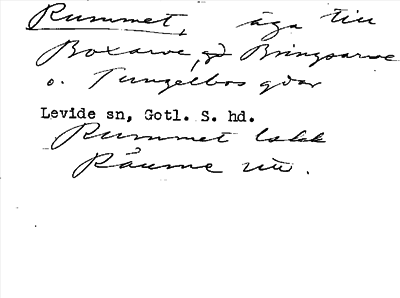 Rummet, äga till
Boxarve, gd Bringsarve
o. Tungelbos gdar
Levide sn, Gotl. S. hd.
Rummet